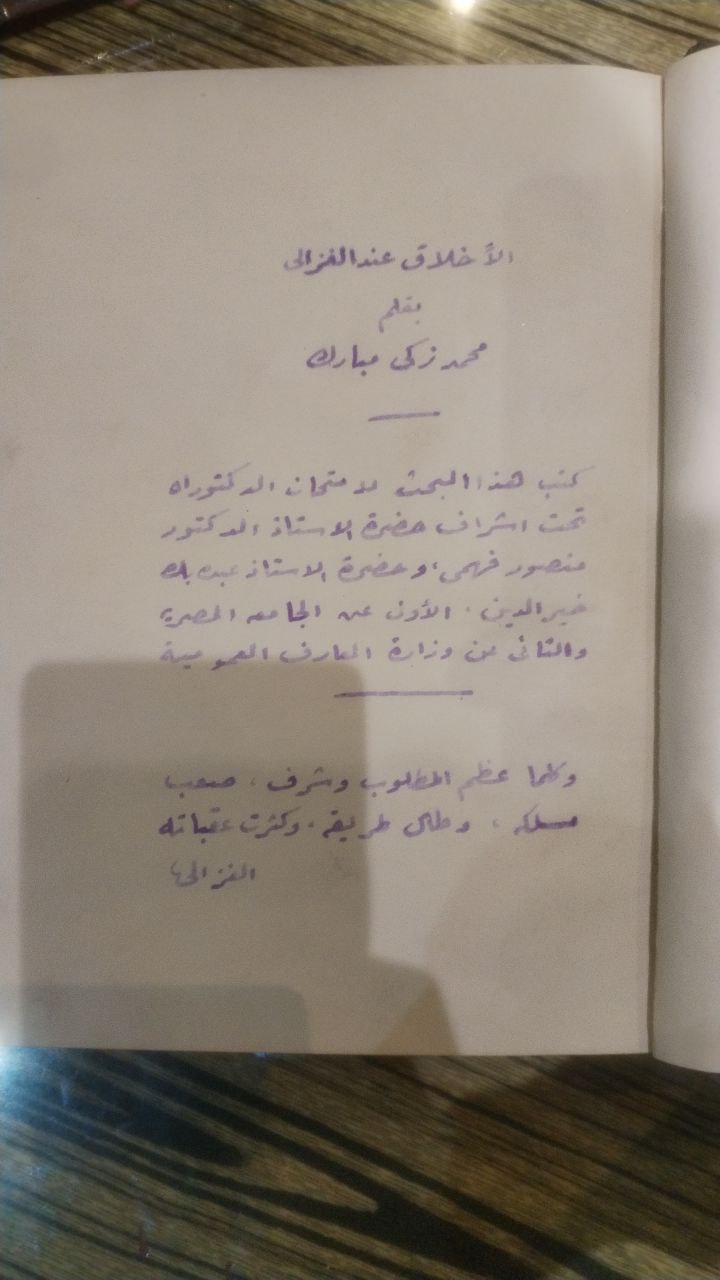 الأخلاق عند الغزالى
بقلم
محمد زكى مبارك
كتب هذا البحث لامتحان الدكتوراه
تحت اشراف حضرة الاستاذ الدكتور
منصور فهمى، وحضرة الاستاذ عبده بك
خير الدين. الأول عن الجامعه المصريه
والثانى عن وزارة المعارف العمومية
وكلما عظم المطلوب وشرف، صعب
مسلكه، وطال طريقه، وكثرت عقباته
الغزالى